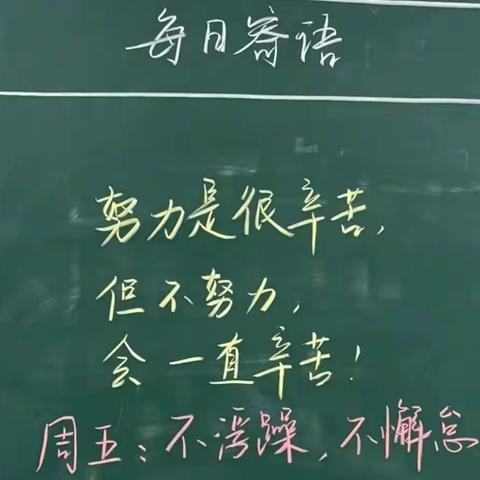 每日寄语
努力是很辛苦,
但不努力,
会一直辛苦!
周五:不浮躁,不懈怠